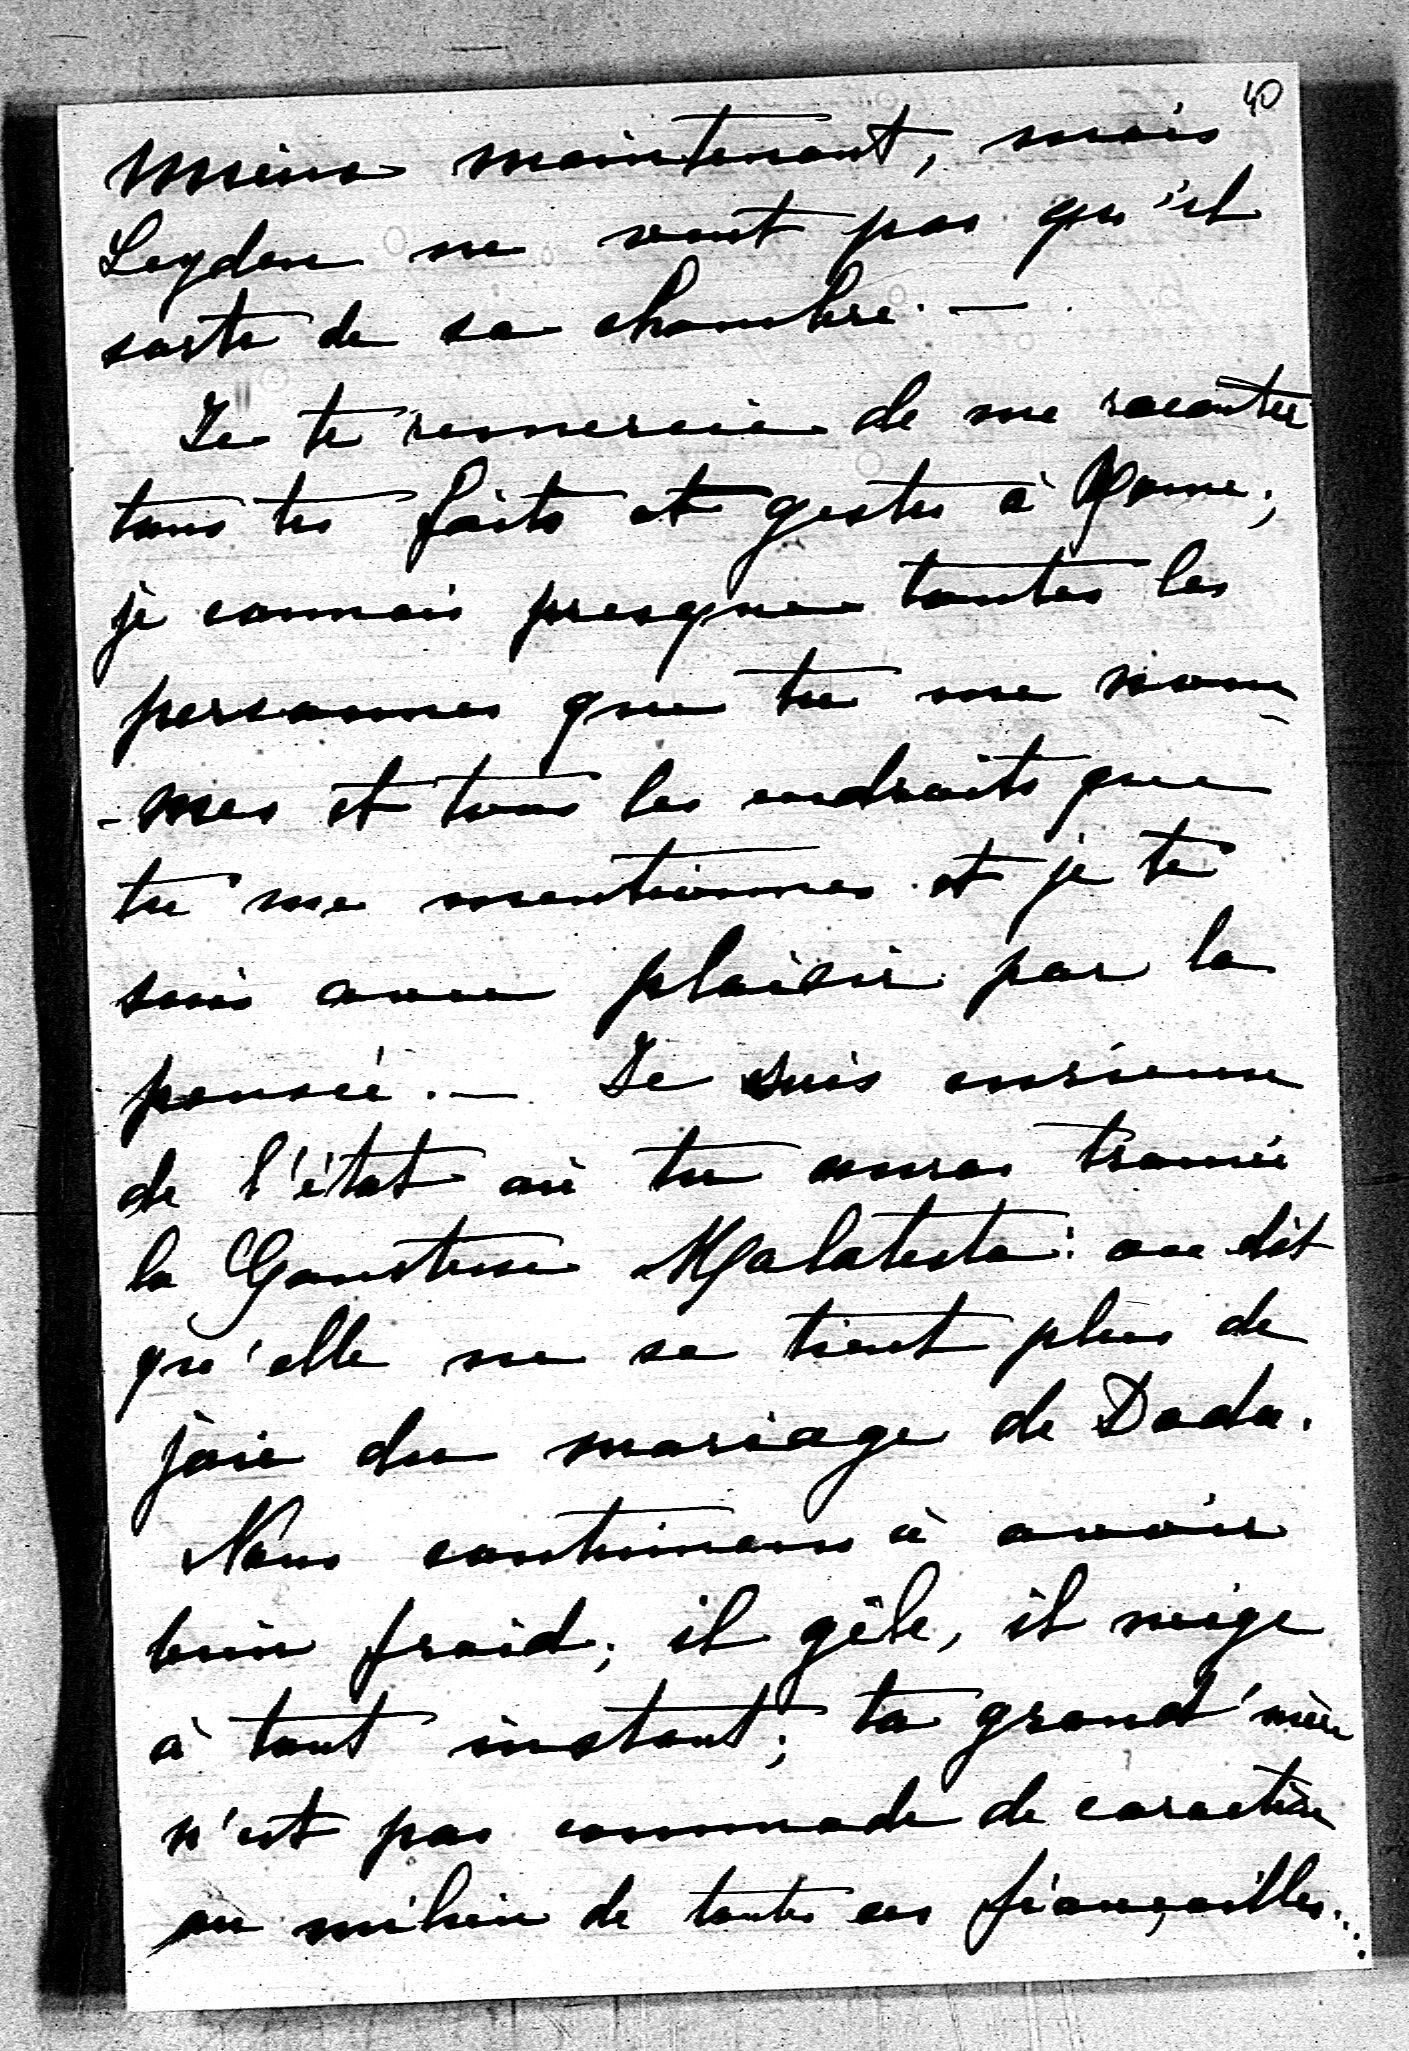 40
mieux maintenant, mais
Leyden ne veut pas qu'il
sorte de sa chambre. —
Je te remercie de me raconter
tous tes faits et gestes à Rome;
je connais presque toutes les
personnes que tu me nom-
-mes et tous les endroits que
tu me mentionnes et je te
suis avec plaisir par la
pensée. — Je suis curieuse
de l'état où tu auras trouvé
la Comtesse Malatesta: on dit
qu'elle ne se tient plus de
joie du mariage de Dada.
Nous continuons à avoir
bien froid; il gèle, il neige
à tout instant; ta grand'mère
n'est pas commode de caractère
au milieu de toutes ces fiançailles...